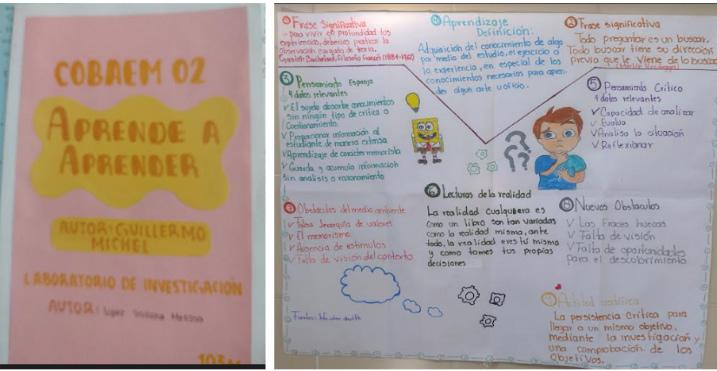 COBAEM 02
APRENDE A
APRENDER
AUTOR: GUILLERMO
MICHEL
LABORATORIO DE INVESTIGACIÓN
AUTOR:
103
① Frase Significativa
- para vivir en profundidad las
experiencias, debemos practicar la
Observación cargada de teoría.
⑥ Aprendizaje
Definición:
Adquisición del conocimiento de algo
por medio del estudio, el ejercicio o
la experiencia, en especial de los
conocimientos necesarios para apren
der algún arte u oficio.
② Frase significativa
Todo preguntar es un buscar.
Todo buscar tiene su dirección
previa que le viene de lo buscado
③ Pensamiento Esponja
4 datos relevantes
✓ El sujeto absorbe conocimientos
sin ningún tipo de crítica o
Cuestionamiento
✓ Proporcionar información al
estudiante de manera extensa
✓ Aprendizaje de corazón memorista
✓ Guarda y acumula información
sin análisis o razonamiento
⑤ Pensamiento Crítico
4 datos relevantes
✓ Capacidad de analizar
✓ Evalúa
✓ Analiza la situación
✓ Reflexionar
Obstáculos del medio ambiente
✓ Falsa Jerarquía de valores
✓ El memorismo
✓ Ausencia de estímulos
✓ Falta de visión del contexto
Lecturas de la realidad
La realidad cualquiera es
como un libro son tan variadas
como la realidad misma, ante
todo, la realidad eres tú mismo
y como tomes tus propias
decisiones
Nuevos Obstáculos
✓ Las Frases huecas
✓ Falta de visión
✓ Falta de oportunidades
para el descubrimiento
Actitud científica
La persistencia Crítica para
llegar a un mismo objetivo,
mediante la investigación y
una comprobación de los
Objetivos.